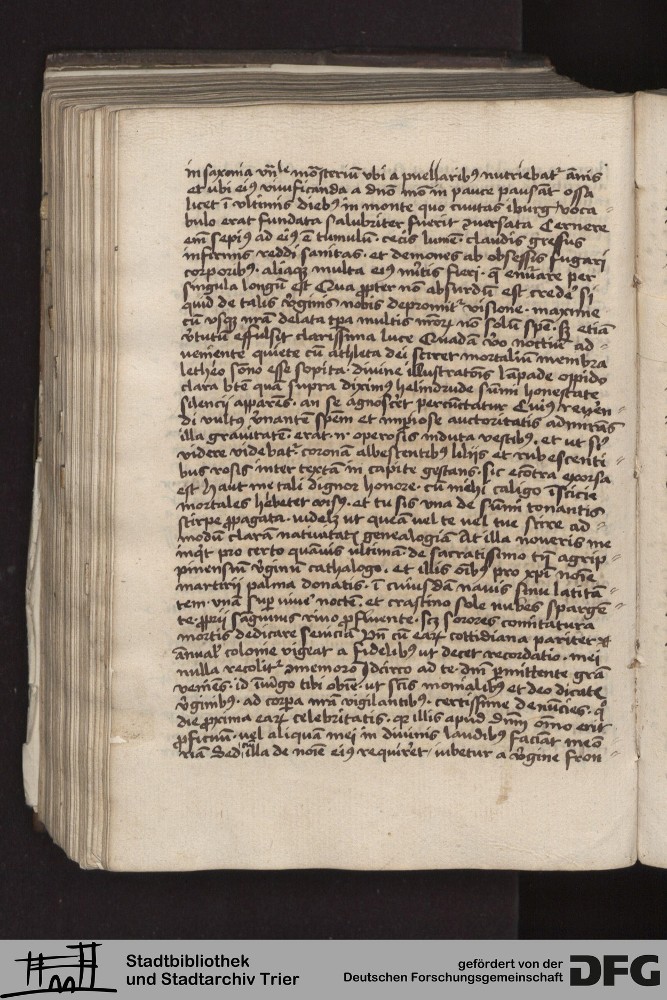 in saxonia vn̄ le mōsteriū vbi a puellarib9 nutriebat᷑ ānis
et ubi ei9 viuificanda a dn̄o mō in pauce pausāt ossa
licet ī vltimis dieb9 in monte quo ciuitas iburg voca
bulo erat fundata salubriter fuerit ꝯuersata Cernere
em̄ sepi9 ad ei9 ē tumulū · cecis lumē · claudis gressus
infirmis reddi sanitas · et demones ab obsessis fugari
corporib9 · aliaqꝫ multa ei9 m̄itis fieri · q̄ enūare per
singula longū est Qua ꝓpter nō absurdū est credē si
quid de talis v̄ginis nobis depromit᷑ visione · maxime
cū vsqꝫ nr̄am delata tp̄a multis mōꝝ nō solū spē · sꝫ etiā
v̄tutū effulsit clarissima luce Quadā v̄o noctiū ad-
veniente quiete cū athleta dei sciret mortaliū membra
letheo sōno esse sopita · diuine illustratōis lāpade oppido
clara btē quā supra diximꝰ helindrude sūmi honestate
silencii apparēs · an se agnoscēt percūctatur Cui9 reuēn-
di vult9 v̄nantē spēm et impiose auctoritatis admirās
illa grauitatē · erat n̄ operosis induta vestib9 · et ut si9
videre videbat᷑ coronam albescentib9 liliis et rubescenti-
bus rosis inter textā in capite gestans · sic ecōtra exorsa
est haut me tali dignor honore · cū michi caligo īsticie
mortales hebetet vis9 · et tu sis vna de sūmi tonantis
stirpe ꝓpagata · videlꝫ ut queā vel te vel tue scire ad-
modū clarā natiuitatꝭ genealogiā At illa noueris me
inqt pro certo quāuis vltimā de sacratissimo tn̄ agrip-
pinensiū v̄ginū cathalogo · et illis oīb9 pro xp̄i noīe
martirii palma donatis · ī cuiusdā nauis sinu latitā-
tem vnā sup viue noctē · et crastino sole nubes spargē-
te · ꝓprij sāguinis riuo ꝓfluente · scꝫ sorores comitatura
mortis dedicare seuicia Vn̄ cū eaꝝ cottidiana pariter ⁊
ānual' colonie vigeat a fidelib9 ut decet recordatio · mei
nulla recolit᷑ ꝯmemorō Idcirco ad te · dn̄i ꝑmittente grā
veniēs · id iniūgo tibi obiē · ut scīs monialib9 et deo dicatꝭ
v̄ginib9 · ad corpa nr̄a vigilantib9 · certissime denūcies · q̄
die proxima eaꝝ celebritatis · qꝛ illis apud dn̄m oīno erit
ꝓficuū · vel aliquā mei in diuinis laudib9 faciāt meō-
riā Sed illa de noīe ei9 requirēt · iubetur a v̄gine fron-
Stadtbibliothek
und Stadtarchiv Trier
gefördert von der
Deutschen Forschungsgemeinschaft
DFG